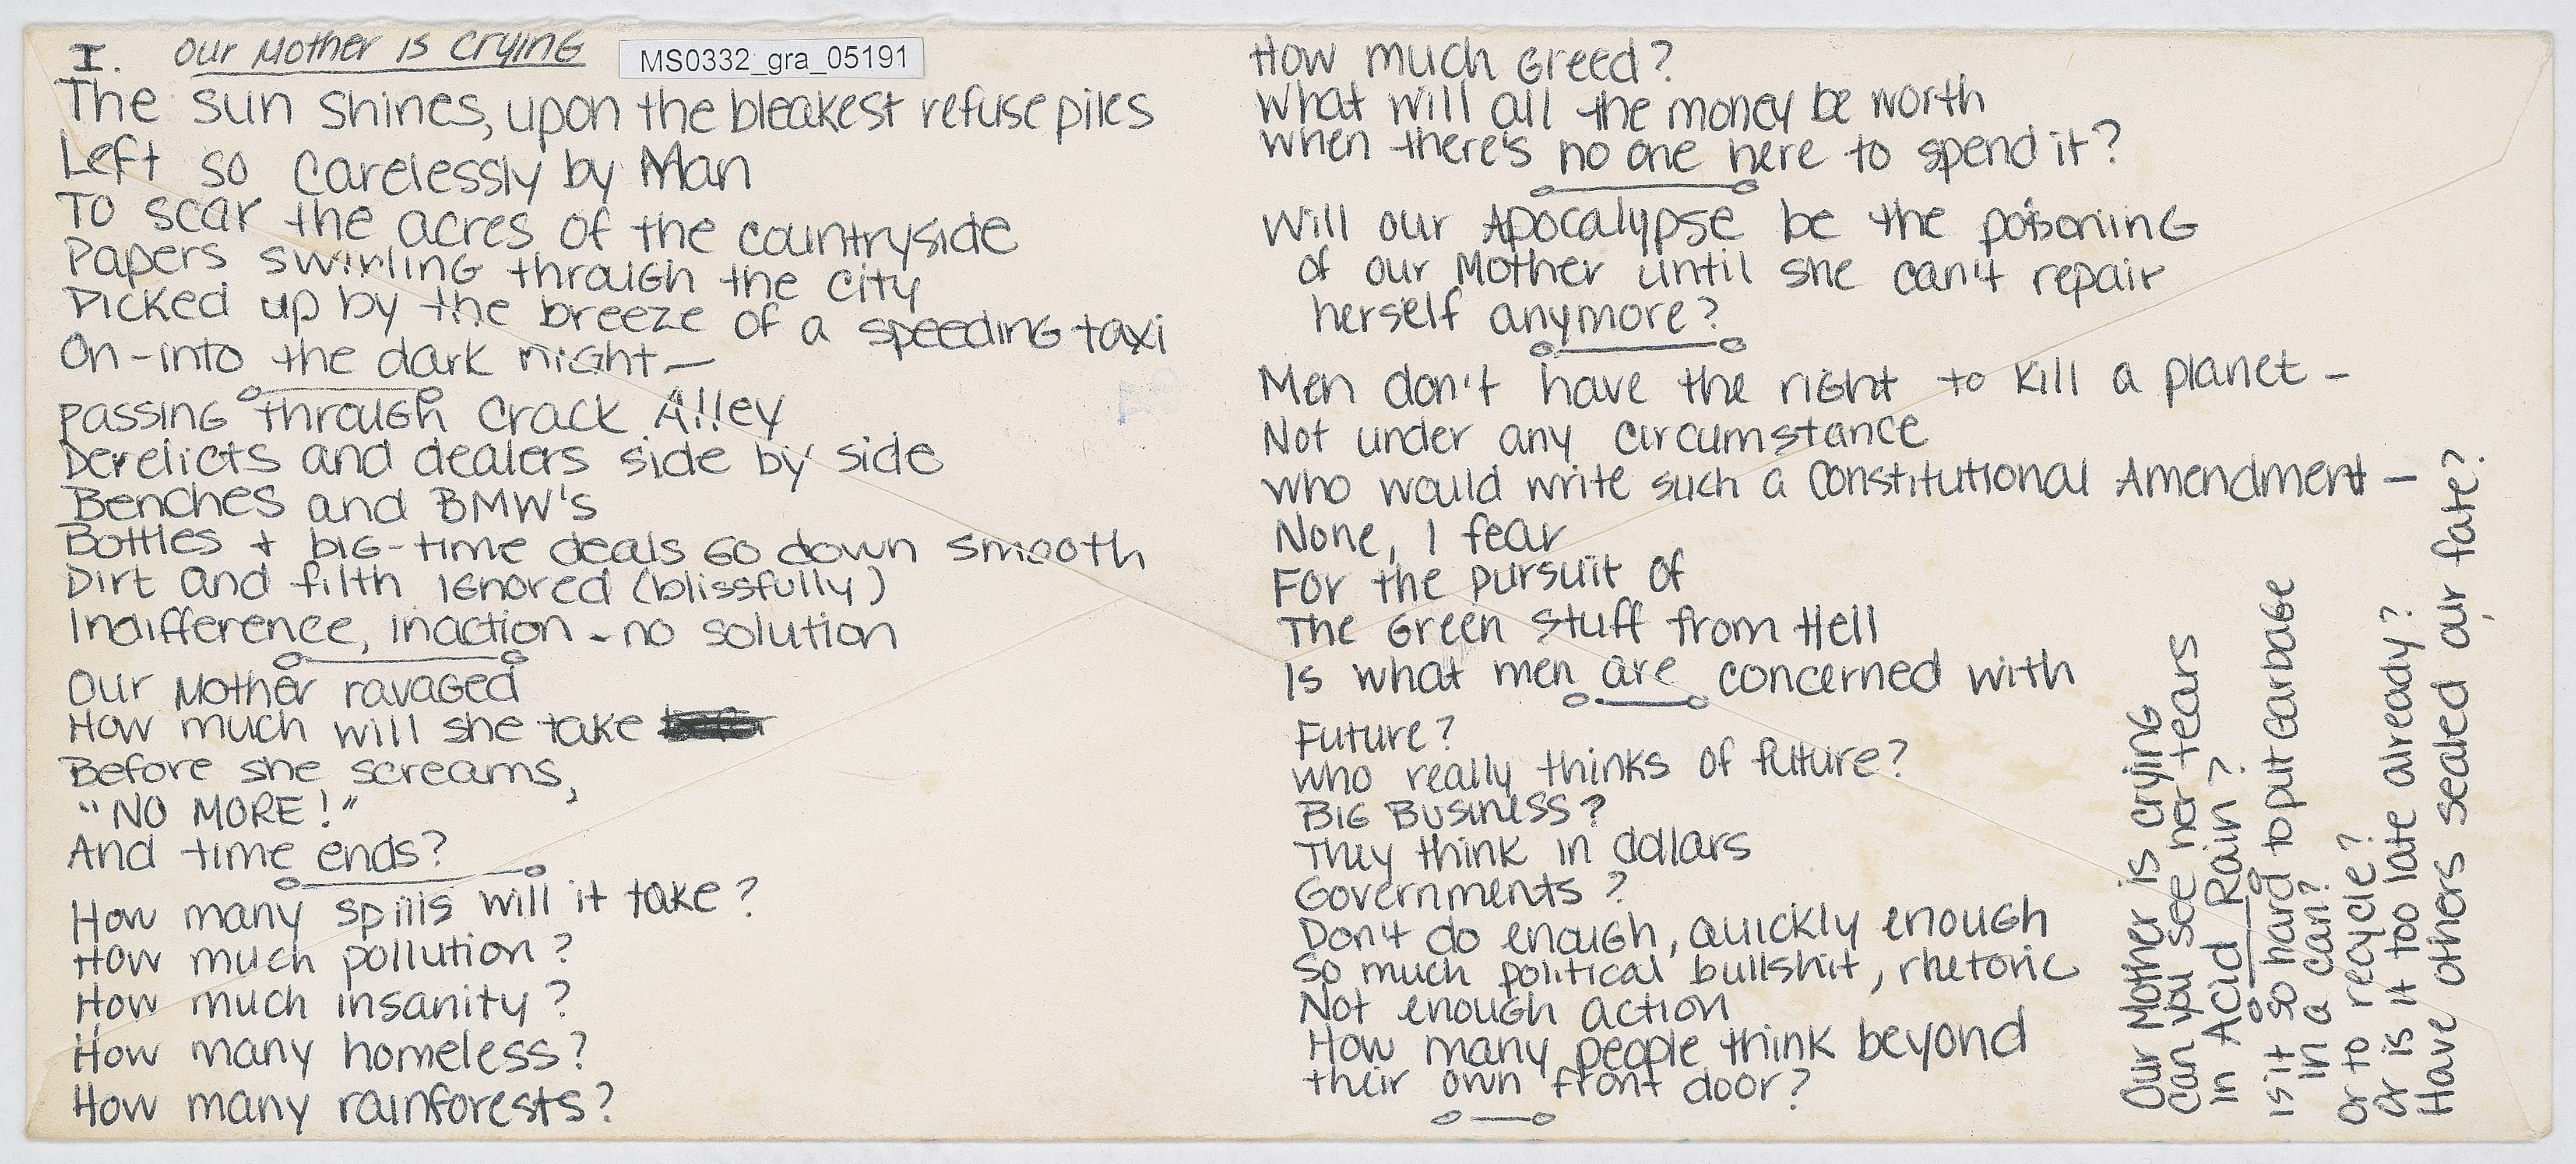 I. Our Mother is Crying
MS0332_gra_05191
The sun shines, upon the bleakest refuse piles
Left so carelessly by Man
To scar the acres of the countryside
Papers swirling through the city
Picked up by the breeze of a speeding taxi
On-into the dark night—
passing through Crack Alley
Derelicts and dealers side by side
Benches and BMW's
Bottles + big-time deals go down smooth
Dirt and filth ignored (blissfully)
Indifference, inaction - no solution
Our Mother ravaged
How much will she take
Before she screams,
"NO MORE!"
And time ends?
How many spills will it take?
How much pollution?
How much insanity?
How many homeless?
How many rainforests?
How much Greed?
What will all the money be worth
when there's no one here to spend it?
Will our Apocalypse be the poisoning
of our Mother until she can't repair
herself anymore?
Men don't have the right to kill a planet -
Not under any circumstance
who would write such a Constitutional Amendment -
None, I fear
For the pursuit of
The Green stuff from Hell
Is what men are concerned with
Future?
who really thinks of future?
Big Business?
They think in dollars
Governments?
Don't do enough, quickly enough
So much political bullshit, rhetoric
Not enough action
How many people think beyond
their own front door?
Our Mother is crying
Can you see her tears
in Acid Rain?
is it so hard to put garbage
in a can?
or to recycle?
Or is it too late already?
Have others sealed our fate?